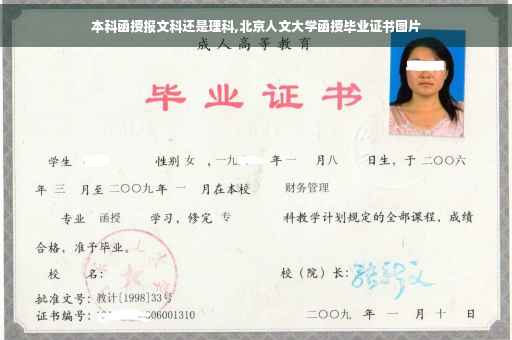 本科函授报文科还是理科,北京人文大学函授毕业证书图片
成人高等教育
毕业证书
学生 性别 女 ,一九 年 一 月八 日生,于二〇〇六
年 三 月至二〇〇九年 一 月在本校 财务管理
专业 函授 学习,修完 专 科教学计划规定的全部课程,成绩
合格,准予毕业。
校 名: 校(院)长:
批准文号:教计[1998]33号
证书编号: 06001310 二〇〇九 年 一 月 十 日